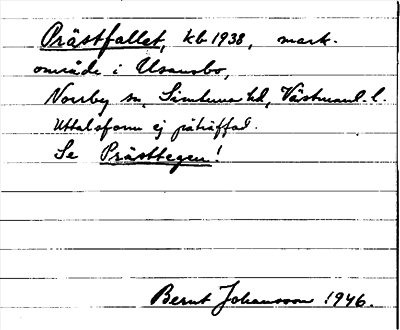 Prästfallet, kb 1938, mark-
område i Usansbo,
Norrby sn, Simtuna hd, Västmanl. l.
Uttalsform ej påträffad.
Se Prästtegen!
Bernt Johansson 1946.